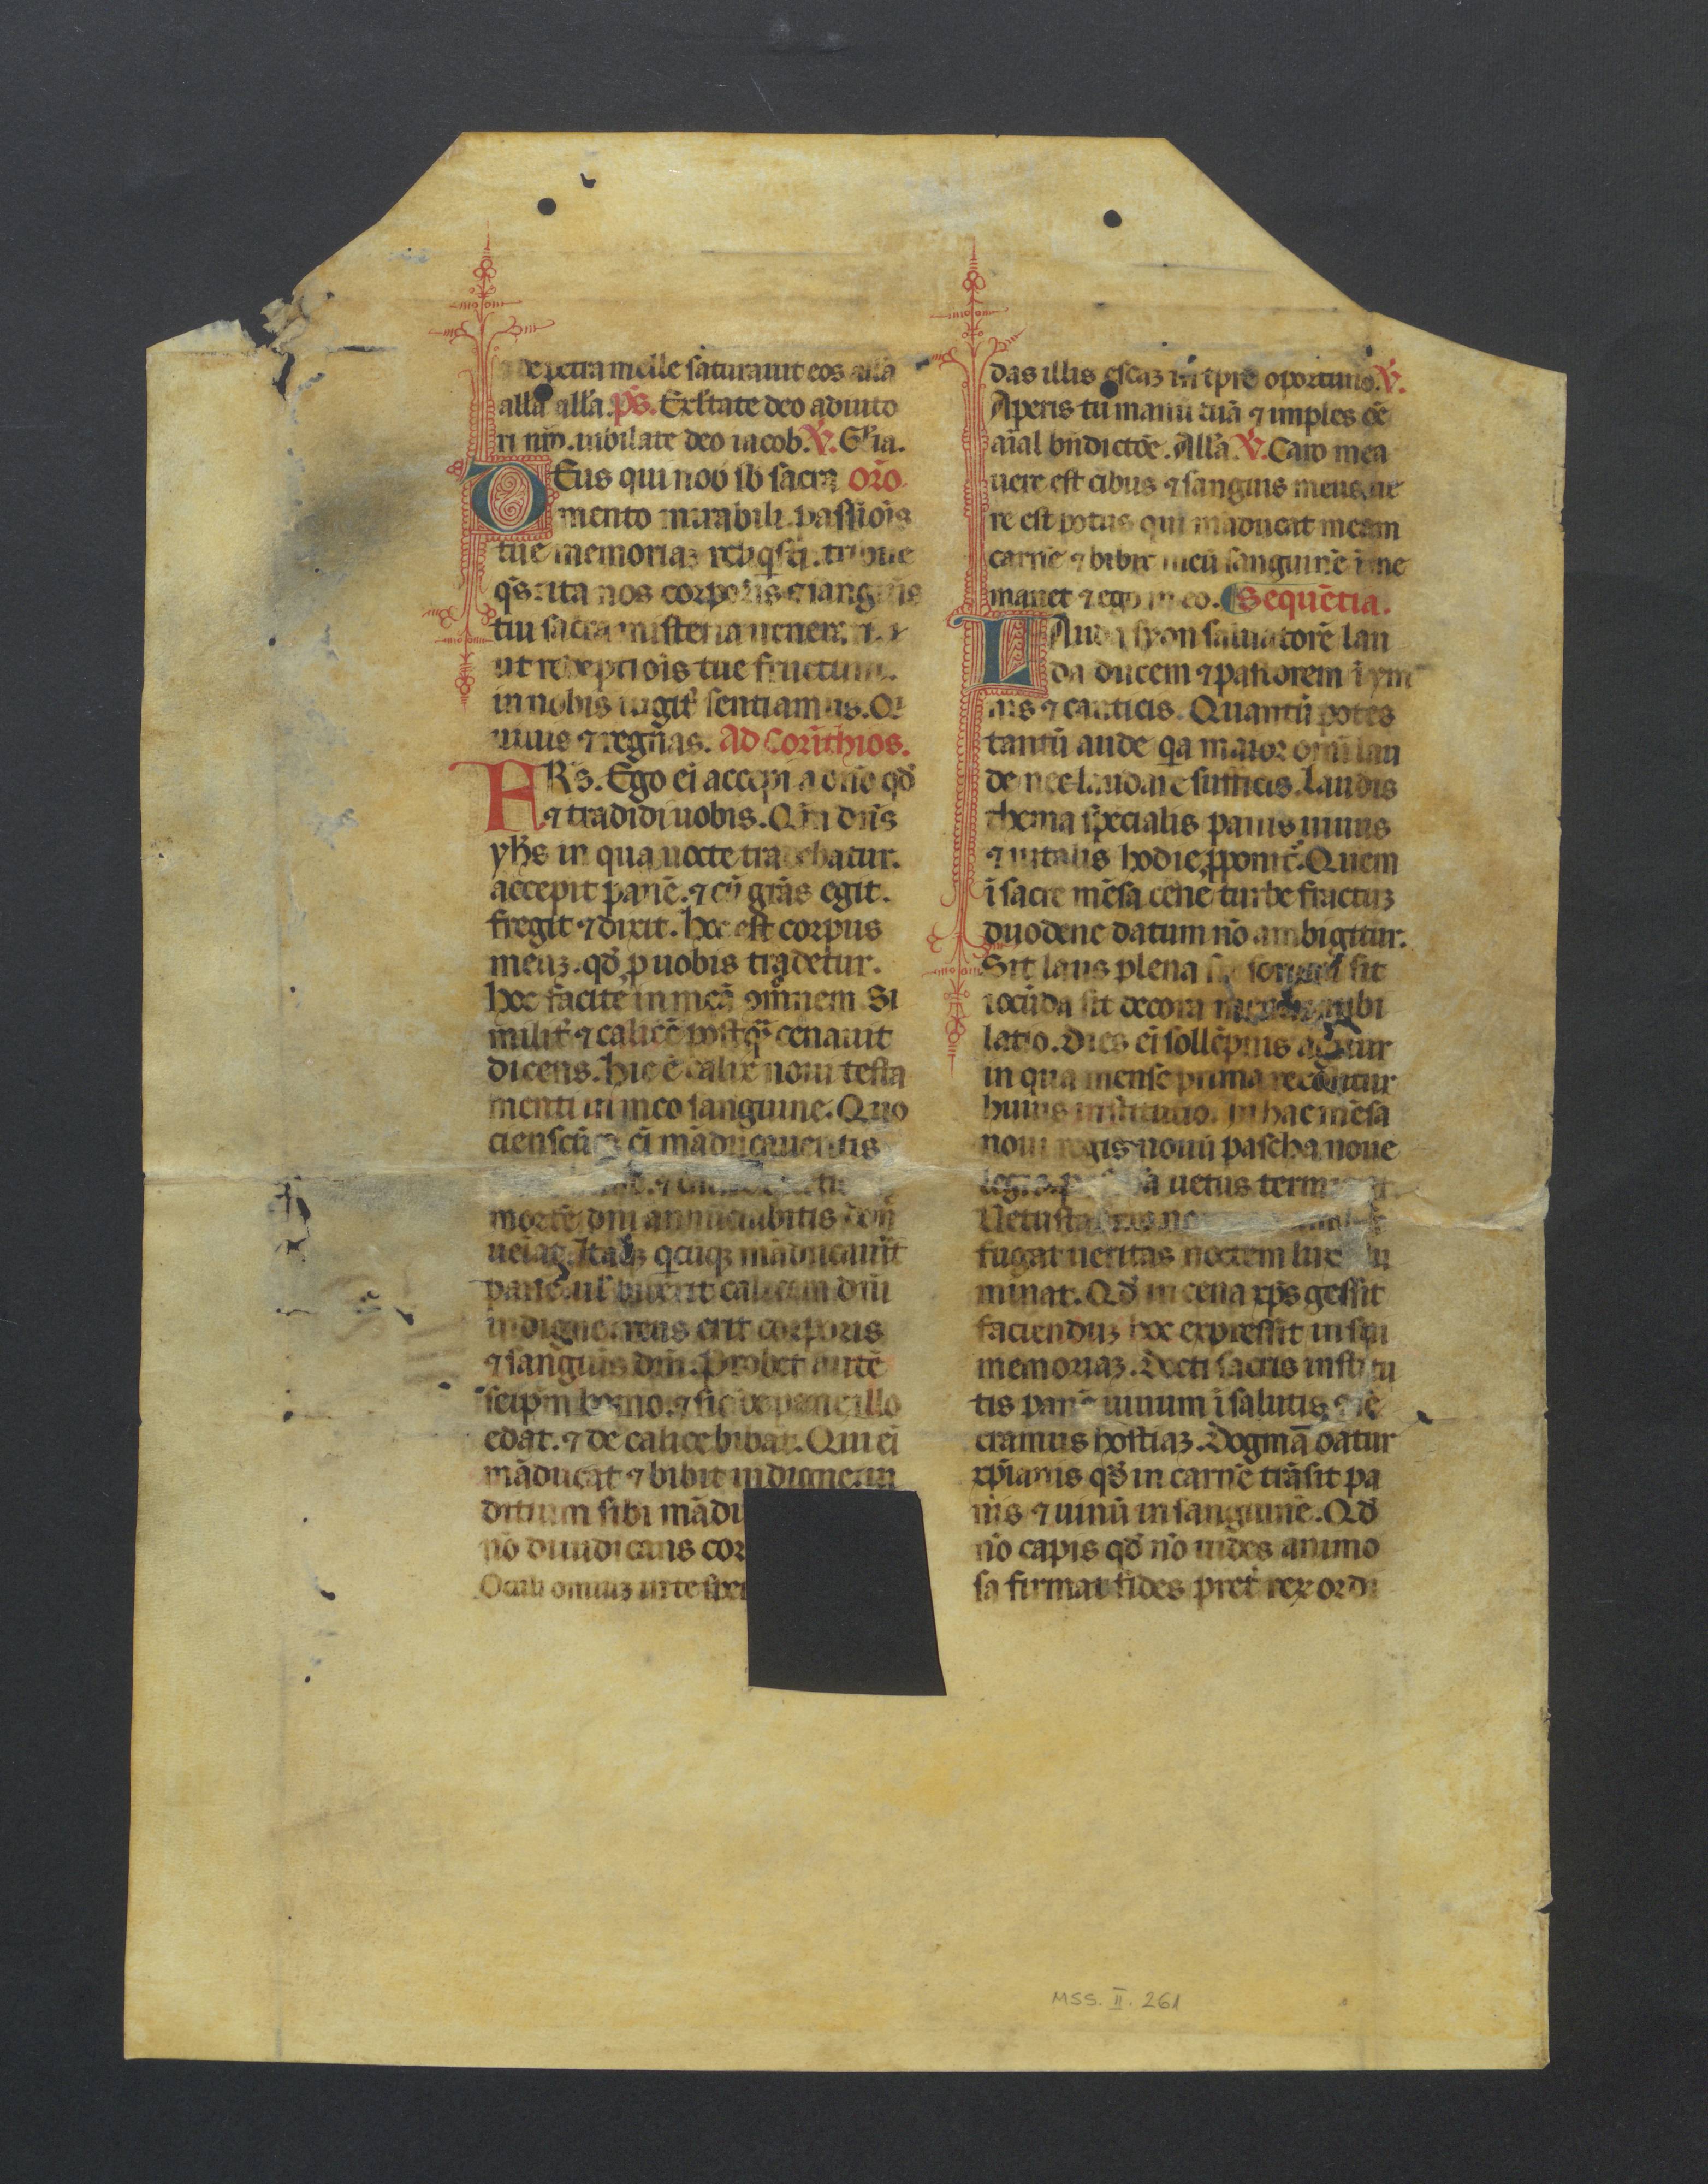 de petra melle saturauit eos all'a
all'a all'a. ps. Exltate deo adiuto
ri nr̄o. iubilate deo iacob. V. Gl'ia.
DEus qui nob̄ sb̄ sacra oro
mento mirabili. passiōis
tue memoriaꝫ reliqͥsti. tribue
qs̄. ita nos corporis ⁊ sanguis
tui sacra misteria uenerari
ut redēptiois tue fructum.
in nobis iugit̄ sentiamus. Qͥ
uiuis ⁊ regn̄as. Ad Corīthios.
FRs̄. Ego ei accepi a dn̄o qd̄
⁊ tradidi uobis. Qm̄ dn̄s
yhs̄ in qua nocte tradebatur.
accepit panē. ⁊ cū grās egit.
fregit ⁊ dixit. hoc est corpus
meuꝫ. qd̄ ꝓ uobis tradetur.
hoc facite in meā ꝯm̄nem Si
milit̄ ⁊ calicē postqͣ cenauit
dicens. hic ē calix noui testa
menti in meo sanguine. Quo
ciensc̄ ei māducauetis
mortē dn̄i annūciabitis don̄
ueiat. Itaqꝫ qͥcūqꝫ māducauīt
panē. ul' biberit calicem dn̄i
indigne. reus erit corporis
⁊ sanguis dn̄i. Probet autē
seipm̄ homo. ⁊ sic de pane illo
edat. ⁊ de calice bibat. Qui ei
māducat ⁊ bibit indigne. iu
ditium sibi mādu
nō diiudicans cor
Oculi omiuꝫ in te spe
das illis escaꝫ in tp̄re oportuno. V.
Aperis tu manū tuā ⁊ imples oē
aīal bn̄dictōe. All'a. V. Caro mea
uere est cibus ⁊ sanguis meus ue
re est potus qui māducat meam
carnē ⁊ bibit meū sanguinē ī me
manet ⁊ ego in eo. Sequētia.
LAuda syon saluatorē lau
da ducem ⁊ pastorem ī ym
nis ⁊ canticis. Quantū potes
tantū aude qͥa maior omī lau
de nec laudare sufficis. Laudis
thema specialis panis uiuus
⁊ uitalis hodie ꝓponit̄. Quem
ī sacre mēsa cene turbe fractuꝫ
duodene datum nō ambigitur.
Sit laus plena sit sonora sit
iocūda sit decora mentis iubi
latio. Dies ei sollēpnis agitur
in qua mense prima recolitur
huius institutio. In hac mēsa
noui regis nouū pascha noue
legis p a uetus termi
Vetusta
fugat ueritas noctem lux lu
minat. Qd̄ in cena xp̄s gessit
faciēduꝫ hoc expressit in sui
memoriaꝫ. Docti sacris institu
tis panē uinum ī salutis ꝯse
cramus hostiaꝫ. Dogmā datur
xp̄ianis qd̄ in carnē trāsit pa
nis ⁊ uinū in sanguinē. Qd̄
nō capis qd̄ nō uides animo
sa firmat fides pret̄ rex ordi
MSS. II. 261